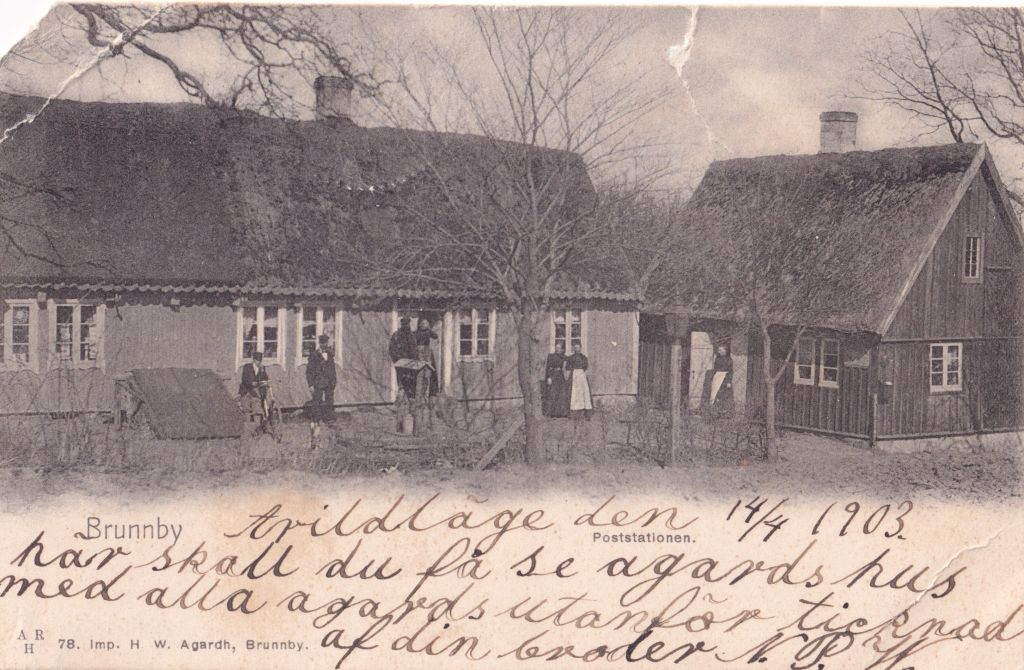 Brunnby
Arildläge den 14/4 1903.
Poststationen.
här skall du få se agards hus
med alla agards utanför ticknad
af din broder N. P. W
A R
H
78. Imp. H W. Agardh, Brunnby.